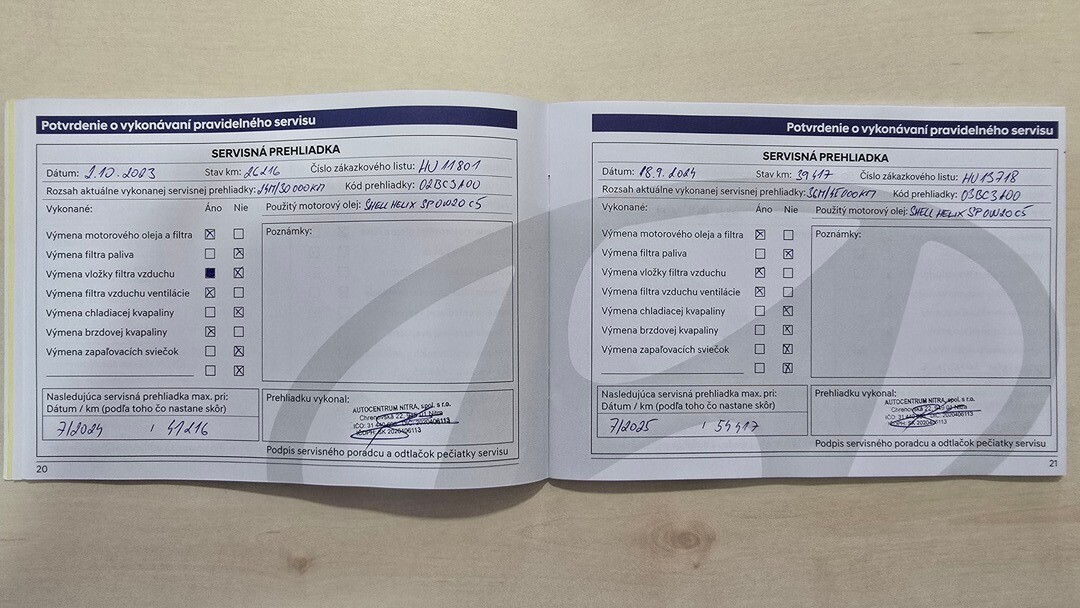 Potvrdenie o vykonávaní pravidelného servisu
SERVISNÁ PREHLIADKA
Dátum: 2.10.2023 Stav km: 26216 Číslo zákazkového listu: HU 11801
Rozsah aktuálne vykonanej servisnej prehliadky: 24M/30000KM Kód prehliadky: 02BC3A00
Vykonané: Áno Nie Použitý motorový olej: SHELL HELIX SP 0W20 C5
Výmena motorového oleja a filtra
Poznámky:
Výmena filtra paliva
Výmena vložky filtra vzduchu
Výmena filtra vzduchu ventilácie
Výmena chladiacej kvapaliny
Výmena brzdovej kvapaliny
Výmena zapaľovacích sviečok
Nasledujúca servisná prehliadka max. pri:
Dátum / km (podľa toho čo nastane skôr)
7/2024 / 41216
Prehliadku vykonal:
AUTOCENTRUM NITRA, spol. s r.o.
Chrenovská 22, Nitra
2020406113
IČDPH: SK 2020406113
Podpis servisného poradcu a odtlačok pečiatky servisu
20
Potvrdenie o vykonávaní pravidelného servisu
SERVISNÁ PREHLIADKA
Dátum: 18.9.2024 Stav km: 39417 Číslo zákazkového listu: HU 13718
Rozsah aktuálne vykonanej servisnej prehliadky: 36M/45000KM Kód prehliadky: 03BC3A00
Vykonané: Áno Nie Použitý motorový olej: SHELL HELIX SP 0W20 C5
Výmena motorového oleja a filtra
Poznámky:
Výmena filtra paliva
Výmena vložky filtra vzduchu
Výmena filtra vzduchu ventilácie
Výmena chladiacej kvapaliny
Výmena brzdovej kvapaliny
Výmena zapaľovacích sviečok
Nasledujúca servisná prehliadka max. pri:
Dátum / km (podľa toho čo nastane skôr)
7/2025 / 54417
Prehliadku vykonal:
AUTOCENTRUM NITRA, spol. s r.o.
Chrenovská 22, Nitra
2020406113
IČDPH: SK 2020406113
Podpis servisného poradcu a odtlačok pečiatky servisu
21